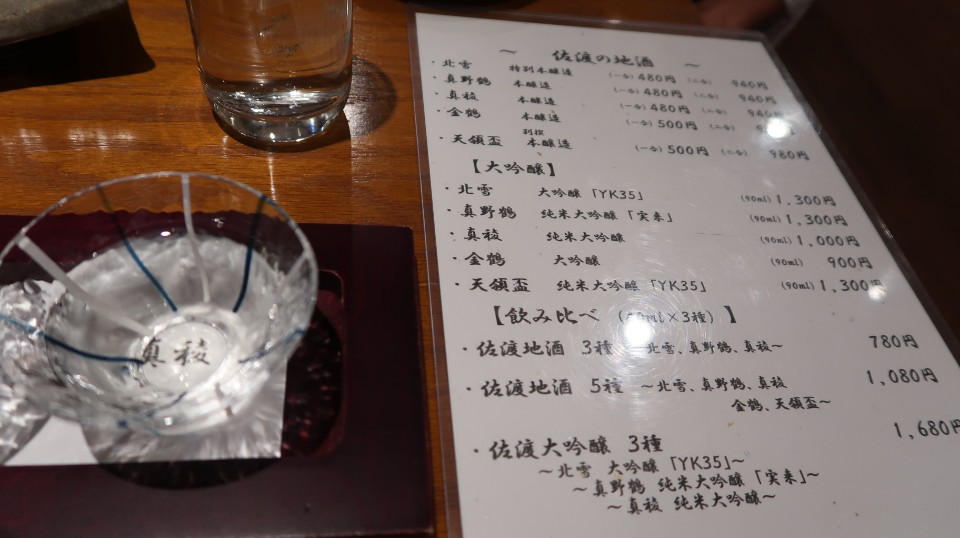 ～ 佐渡の地酒 ～
・北雪 特別本醸造 (一合) 480円 (二合) 940円
・真野鶴 本醸造 (一合) 480円 (二合) 940円
・真稜 本醸造 (一合) 480円 (二合) 940円
・金鶴 本醸造 (一合) 500円 (二合)
・天領盃 別撰 本醸造 (一合) 500円 (二合) 980円
【大吟醸】
・北雪 大吟醸「YK35」 (90ml) 1,300円
・真野鶴 純米大吟醸「実来」 (90ml) 1,300円
・真稜 純米大吟醸 (90ml) 1,000円
・金鶴 大吟醸 (90ml) 900円
・天領盃 純米大吟醸「YK35」 (90ml) 1,300円
【飲み比べ ml×3種)】
・佐渡地酒 3種 ～北雪、真野鶴、真稜～ 780円
・佐渡地酒 5種 ～北雪、真野鶴、真稜 1,080円
金鶴、天領盃～
・佐渡大吟醸 3種 1,680円
～北雪 大吟醸「YK35」～
～真野鶴 純米大吟醸「実来」～
～真稜 純米大吟醸～
真稜